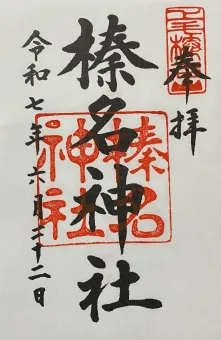 奉拝
榛名神社
令和七年六月二十二日
榛名
神社